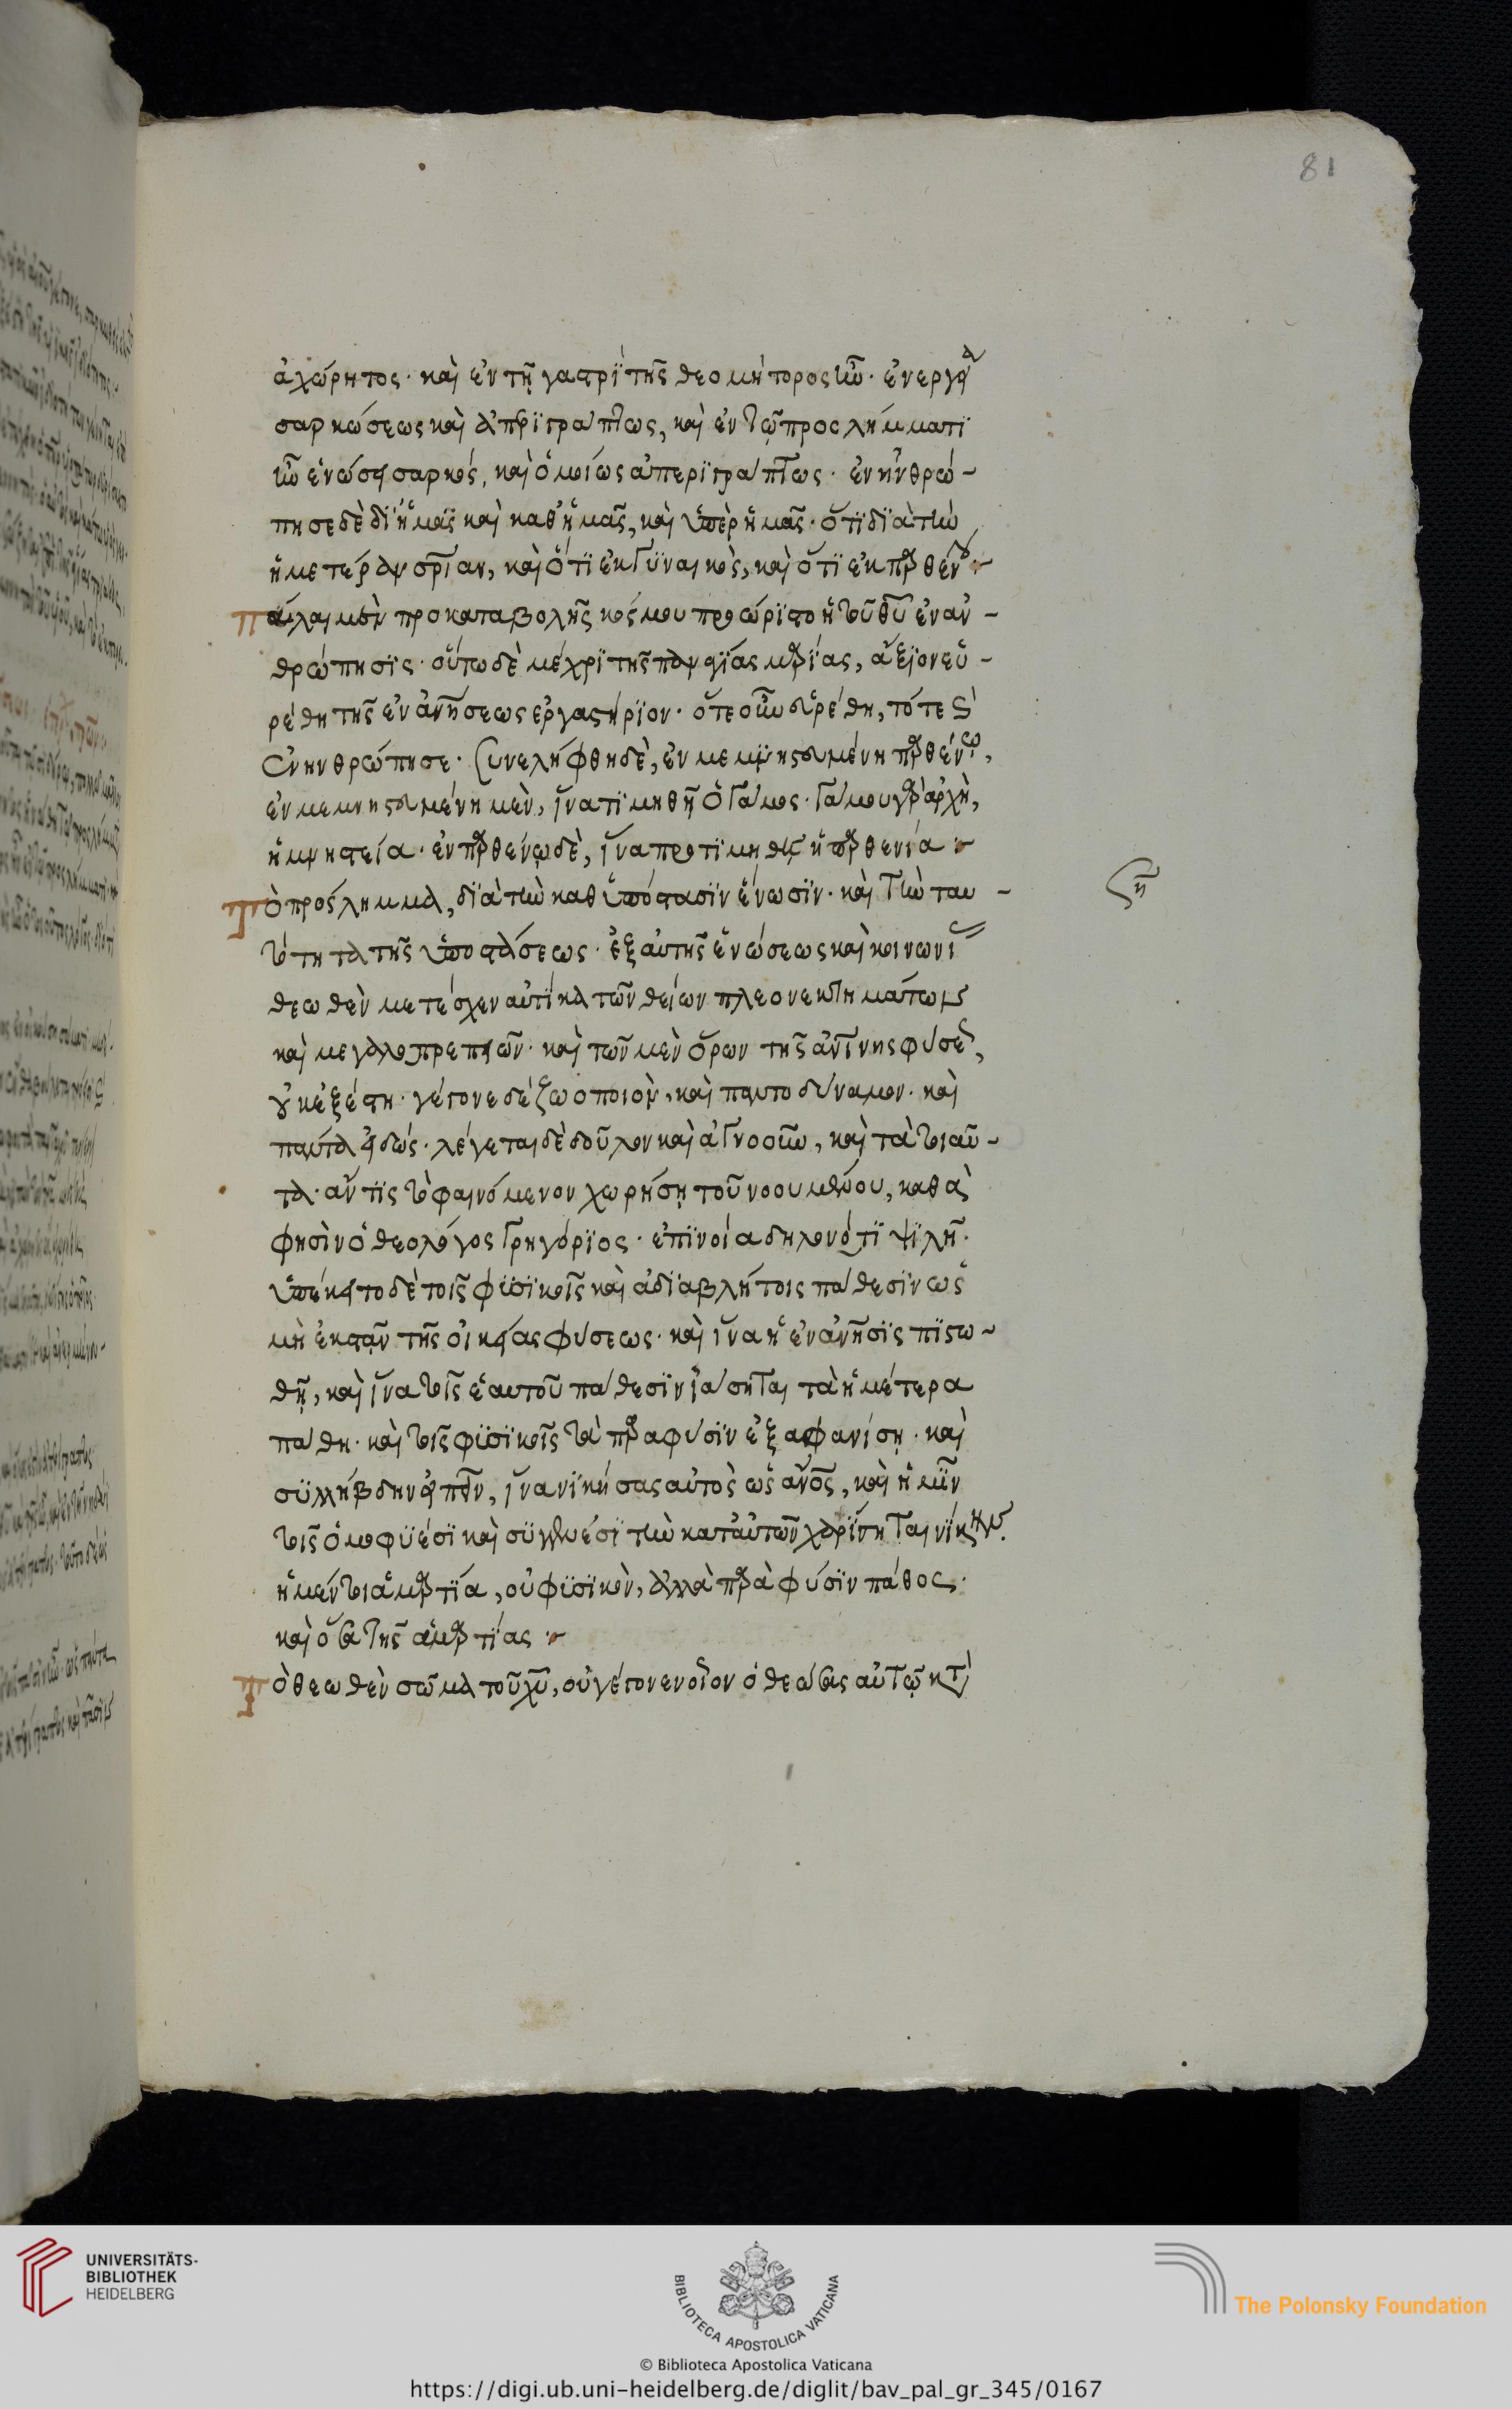 81
ἀχώρητος· καὶ ἐν τῇ γαστρὶ τῆς θεομήτορος ἦν· ἐνεργεία
σαρκώσεως καὶ ἀπεριγράπτως, καὶ ἐν τῷ προσλήμματι
ἦν ἑνώσει σαρκός, καὶ ὁμοίως ἀπεριγράπτως· ἐνηνθρώ-
πησε δὲ δι' ἡμᾶς καὶ καθ' ἡμᾶς, καὶ ὑπὲρ ἡμᾶς· ὅτι διὰ τὴν
ἡμετέραν σρίαν, καὶ ὅτι ἐκ γυναικὸς, καὶ ὅτι ἐκ παρθένου
Πάλαι μὲν προκαταβολῆς κόσμου προώριστο ἡ τοῦ θυ ἐναν-
θρώπησις· οὕπω δὲ μέχρι τῆς παναγίας μαρίας, ἄξιον εὑ-
ρέθη τῆς ἐνανήσεως ἐργαστήριον· ὅτε οὖν εὑρέθη, τότε καὶ
ἐνηνθρώπησε· συνελήφθη δὲ, ἐν μεμνηστευμένη παρθένω,
ἐν μεμνηστευμένη μὲν, ἵνα τιμηθῆ ὁ γάμος· γάμου γὰρ ἀρχὴ,
ἡ μνηστεία· ἐν παρθένῳ δὲ, ἵνα προτιμηθῇ ἡ παρθενία
Τὸ πρόσλημμα, διὰ τὴν καθ' ὑπόστασιν ἕνωσιν· καὶ τὴν ταυ-
τότητα τῆς ὑποστάσεως· ἐξ αὐτῆς ἑνώσεως καὶ κοινωνίας
θεωθὲν μετέσχεν αὐτίκα τῶν θείων πλεονεκτημάτων
καὶ μεγαλοπρεπειῶν· καὶ τῶν μὲν ὅρων τῆς ἀνίνης φύσεως,
οὐκ ἐξέστη· γέγονε δὲ ζωοποιὸν, καὶ παντοδύναμον· καὶ
πάντα εἰδώς· λέγεται δὲ δοῦλον καὶ ἀγνοοῦν, καὶ τὰ τοιαῦ-
τα· ἄν τις τὸ φαινόμενον χωρήσῃ τοῦ νοουμένου, καθὰ
φησὶν ὁ θεολόγος Γρηγόριος· ἐπινοία δηλονότι ψιλῆ·
ὑπέκειτο δὲ τοῖς φυσικοῖς καὶ ἀδιαβλήτοις πάθεσιν ὡς
μὴ ἐκστᾶν τῆς οἰκείας φύσεως· καὶ ἵνα ἡ ἐνανησις πιστω-
θῇ, καὶ ἵνα τοῖς ἑαυτοῦ πάθεσιν ἰάσηται τὰ ἡμέτερα
πάθη· καὶ τοῖς φυσικοῖς τὰ παραφύσιν ἐξαφανίσῃ· καὶ
συλλήβδην εἰπεῖν, ἵνα νικήσας αὐτὸς ὡς ἀνος, καὶ ἡμῖν
τοῖς ὁμοφυέσι καὶ συγγενέσι τὴν κατ' αὐτῶν χαρίσηται νίκην.
ἡ μέντοι ἁμαρτία, οὐ φυσικὸν, ἀλλὰ παρὰ φύσιν πάθος·
καὶ ὅσα τῆς ἁμαρτίας
Τὸ θεωθὲν σῶμα τοῦ χυ, οὐ γέγονεν οἷον ὁ θεώσας αὐτῷ κατὰ
UNIVERSITÄTS-
BIBLIOTHEK
HEIDELBERG
BIBLIOTECA APOSTOLICA VATICANA
The Polonsky Foundation
© Biblioteca Apostolica Vaticana
https://digi.ub.uni-heidelberg.de/diglit/bav_pal_gr_345/0167